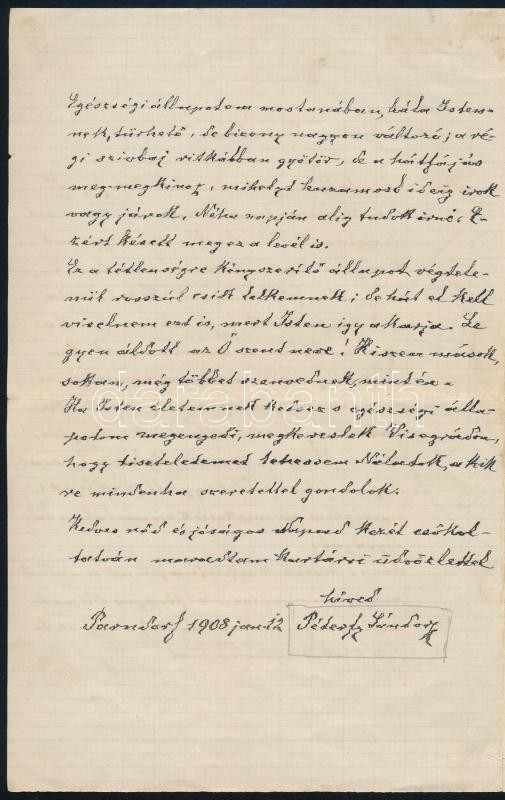 Egészségi állapotom mostanában, hála Isten-
nek, türhető, de bizony nagyon változó; a ré-
gi szivbaj ritkábban gyötör, de a hátfájás
meg-megkinoz, mihelyt huzamosb ideig irok
vagy járok. Néha napján alig tudok irni. E-
zért késett meg ez a levél is.
Ez a tétlenségre kényszerítő állapot végtele-
nül rosszúl esik lelkemnek; de hát el kell
viselnem ezt is, mert Isten igy akarja. Le-
gyen áldott az Ő szent neve! Hiszen mások,
sokan, még többet szenvednek, mint én.
Ha Isten életemnek kedvez s egészségi álla-
potom megengedi, megkereslek Visegrádon,
hogy tiszteletemet tehessem Nálatok, a kik-
re mindenha szeretettel gondolok.
Kedves nőd és jóságos Napad kezét csókol-
tatván maradtam kartársi üdvözlettel
hived
Parndorf 1908 jan. 12 Péterfy Sándor
darabanth